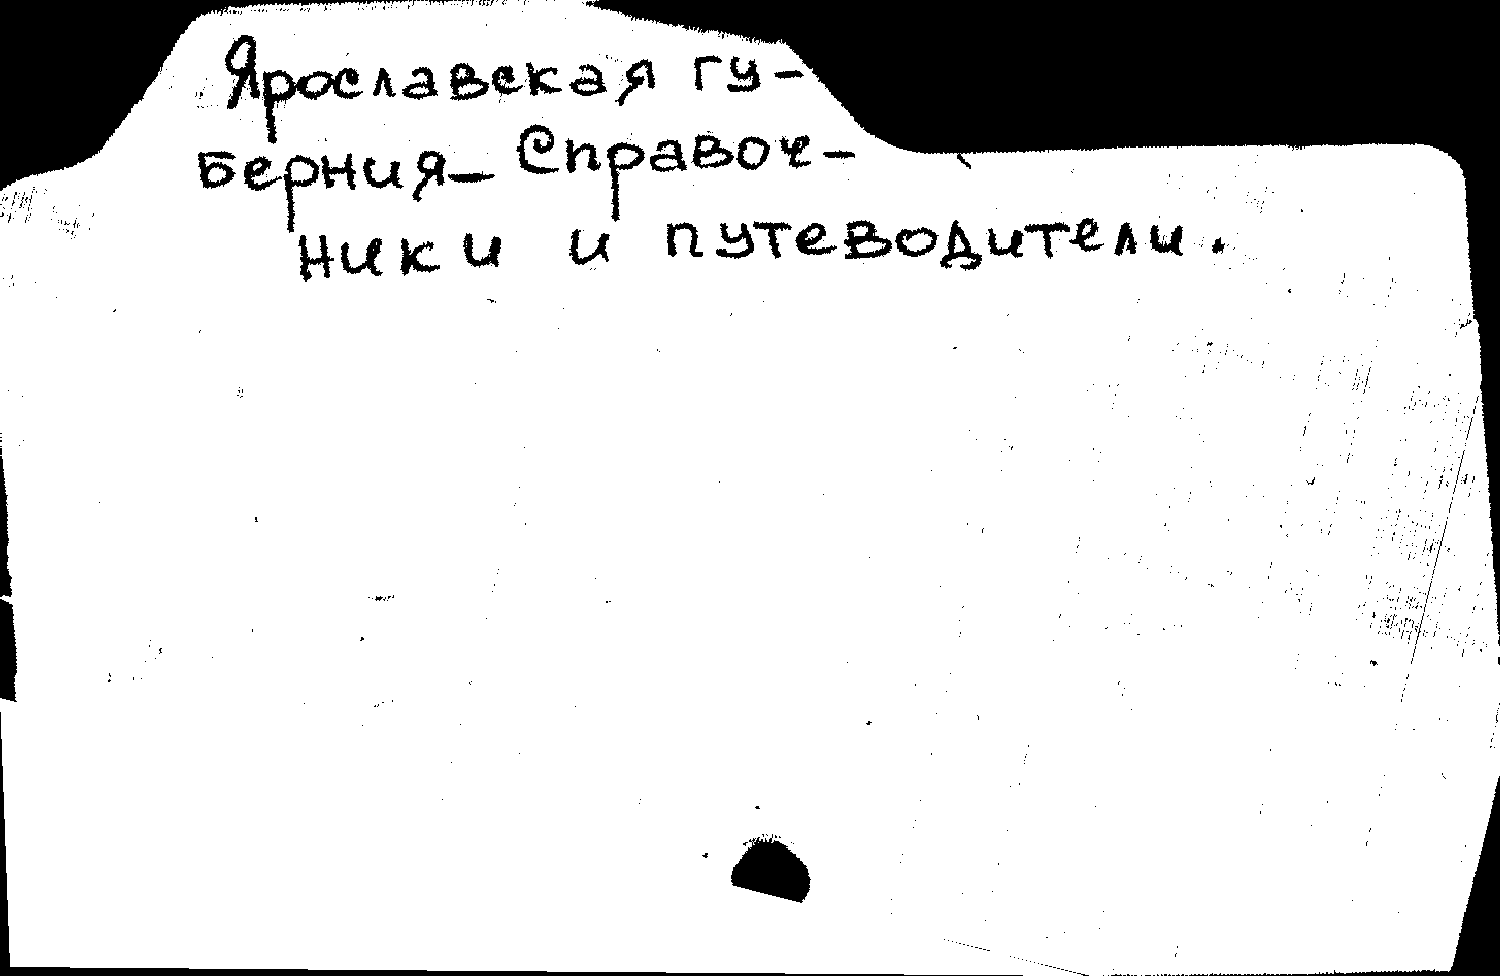 Ярославская гу-
берния – Справоч-
ники и путеводители.